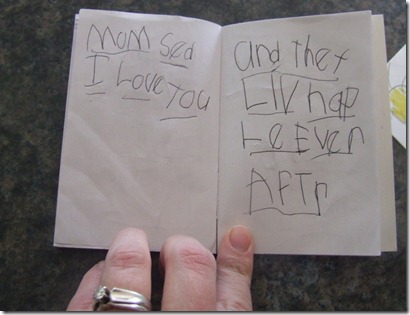 MoM Sed
I Love
You
and thet
LIV hap
Le Ever
AFTr